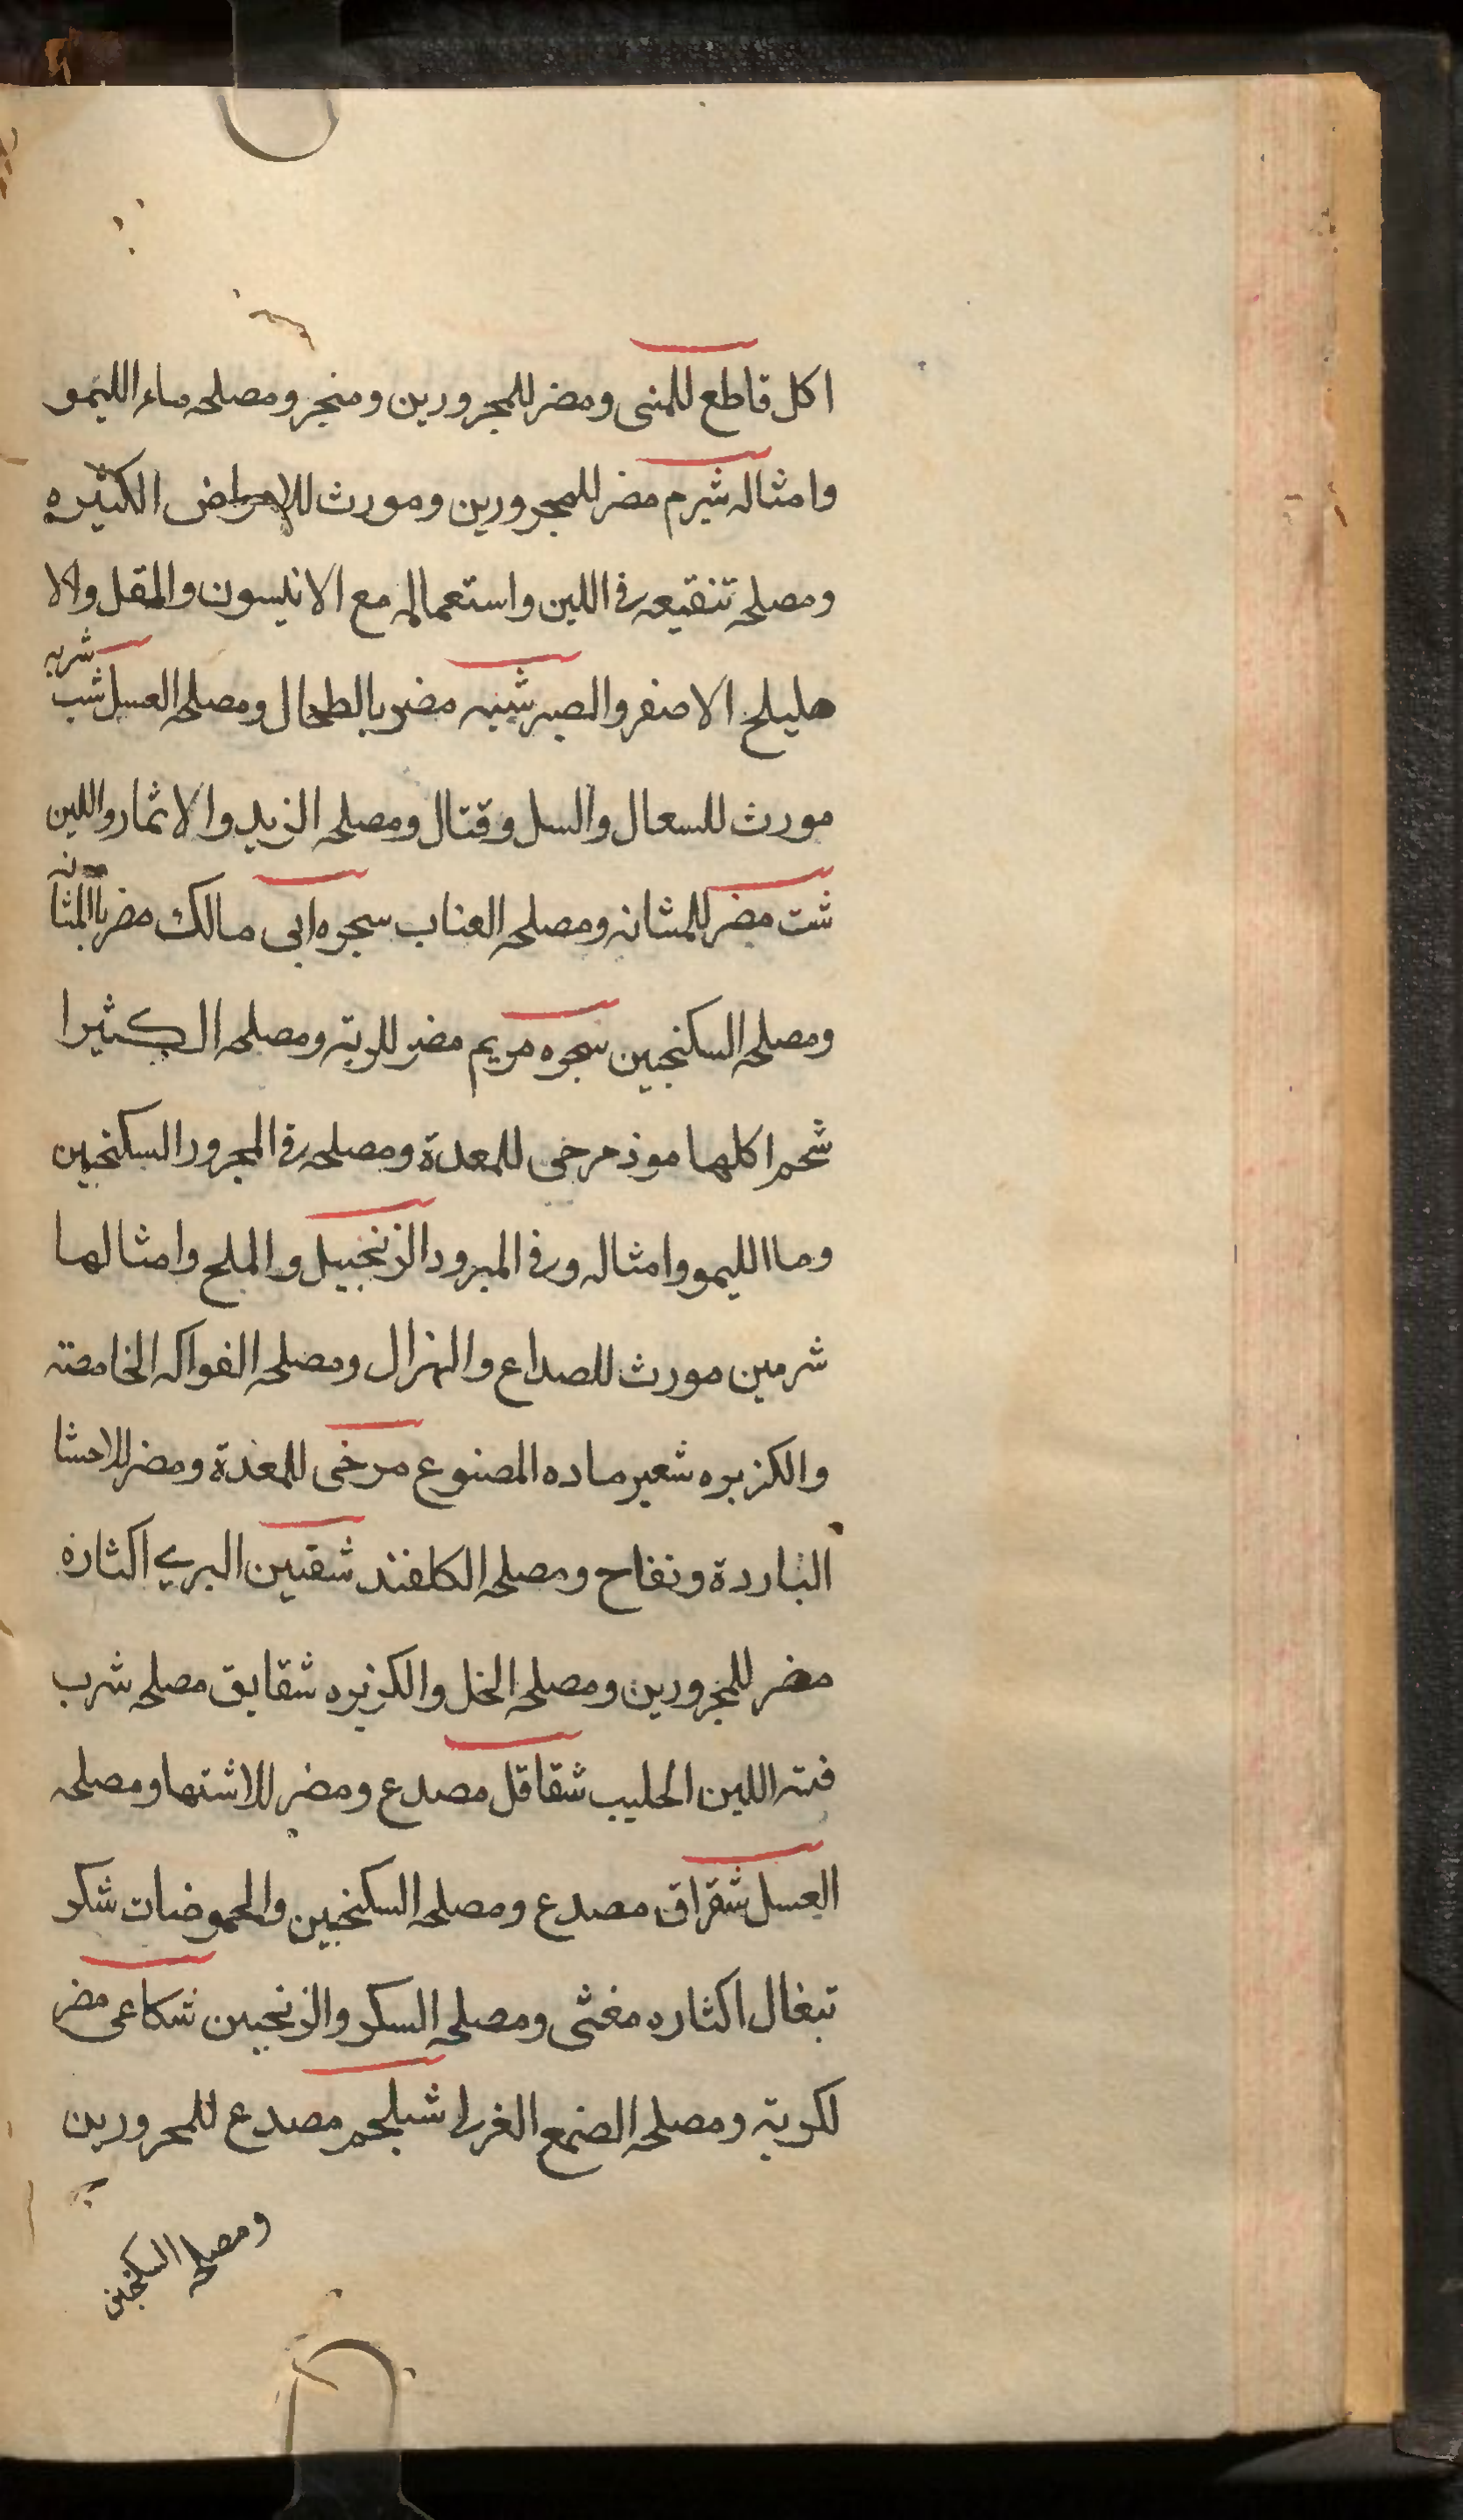 اكل قاطع للمنى ومضر للمجرورين ومنجر ومصلحه ماء الليمو
وامثاله شبرم مضر للمجرورين ومورث للامراض الكثيره
ومصلحه تنقيعه فى اللبن واستعماله مع الانيسون والمقل والا
هليلح الاصفر والصبر شيبه مضر بالطحال ومصلحه العسل شب
شربه
مورث للسعال والسل وقتال ومصلحه الزبد والاثمار واللبن
شت مضر للمشانه ومصلحه العناب سجره ابى مالك مضر بالمثا
نه
ومصلحه السكنجبين سجره مريم مضر للريته ومصلحه الكثيرا
شحم اكلها موذ مرخى للمعدة ومصلحه فى المجرور السكنجبين
وماالليمو وامثاله وفى المبرود الزنجبيل والملح وامثالها
شرمين مورث للصداع والهزال ومصلحه الفواكه الخامضته
والكزبره شعير ماده المصنوع مرخى للمغدة ومضر للاحشا
الباردة ونفاح ومصلحه الكلفند شقنين البري اكثاره
مضر للمجرورين ومصلحه الخل والكزبره شقايق مصلحه شرب
فته اللبن الحليب شقاقل مصدع ومضر للاشتها ومصلحه
العسل شقراق مصدع ومصلحه السكنجبين والحموضات شكر
تيغال اكثاره مغثى ومصلحه السكر والزنجبين شكاعى مضر
لكويته ومصلحه الصمع الغربا شبلجم مصدع للمحرورين
ومصلحه السكنجبين